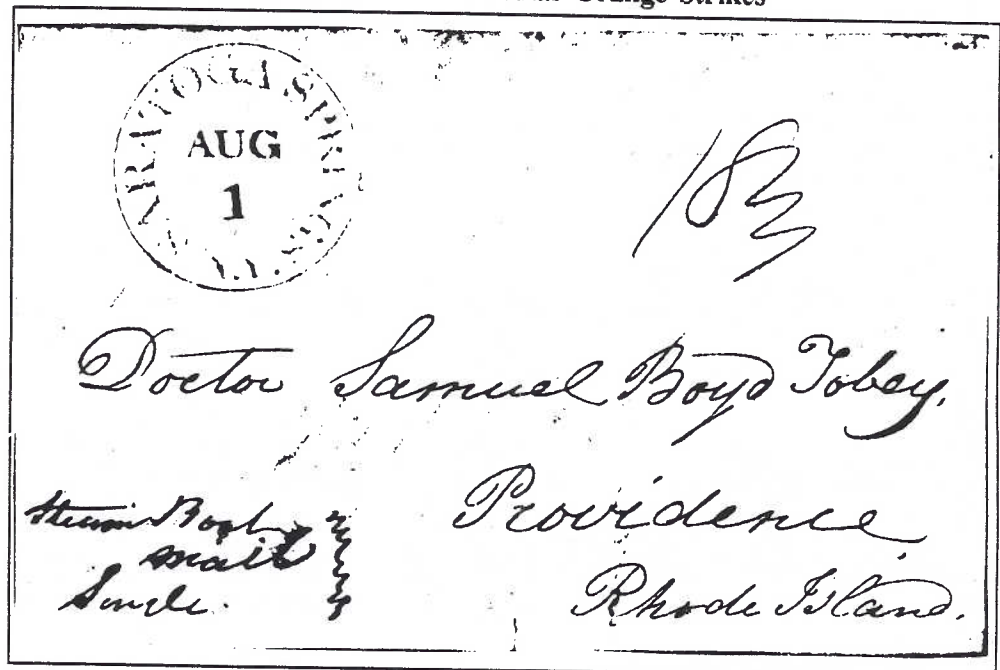 Orange Strikes
SARATOGA SPRINGS
AUG
1
N.Y.
18¾
Doctor Samuel Boyd Tobey.
Providence
Rhode Island.
Steam Boat
mail
Single.